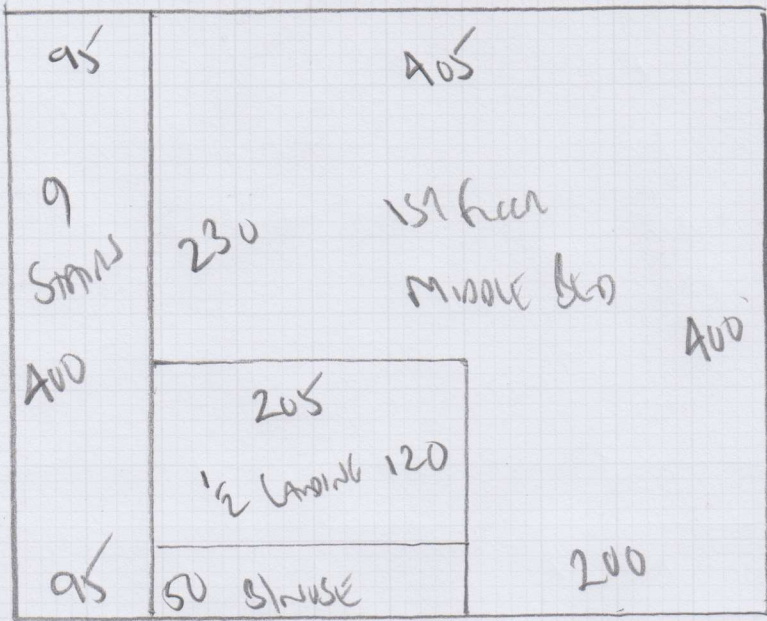 95
405
9
STAIRS
400
230
1ST FLOOR
MIDDLE BED
400
205
1/2 LANDING 120
95
50 B/NOSE
200